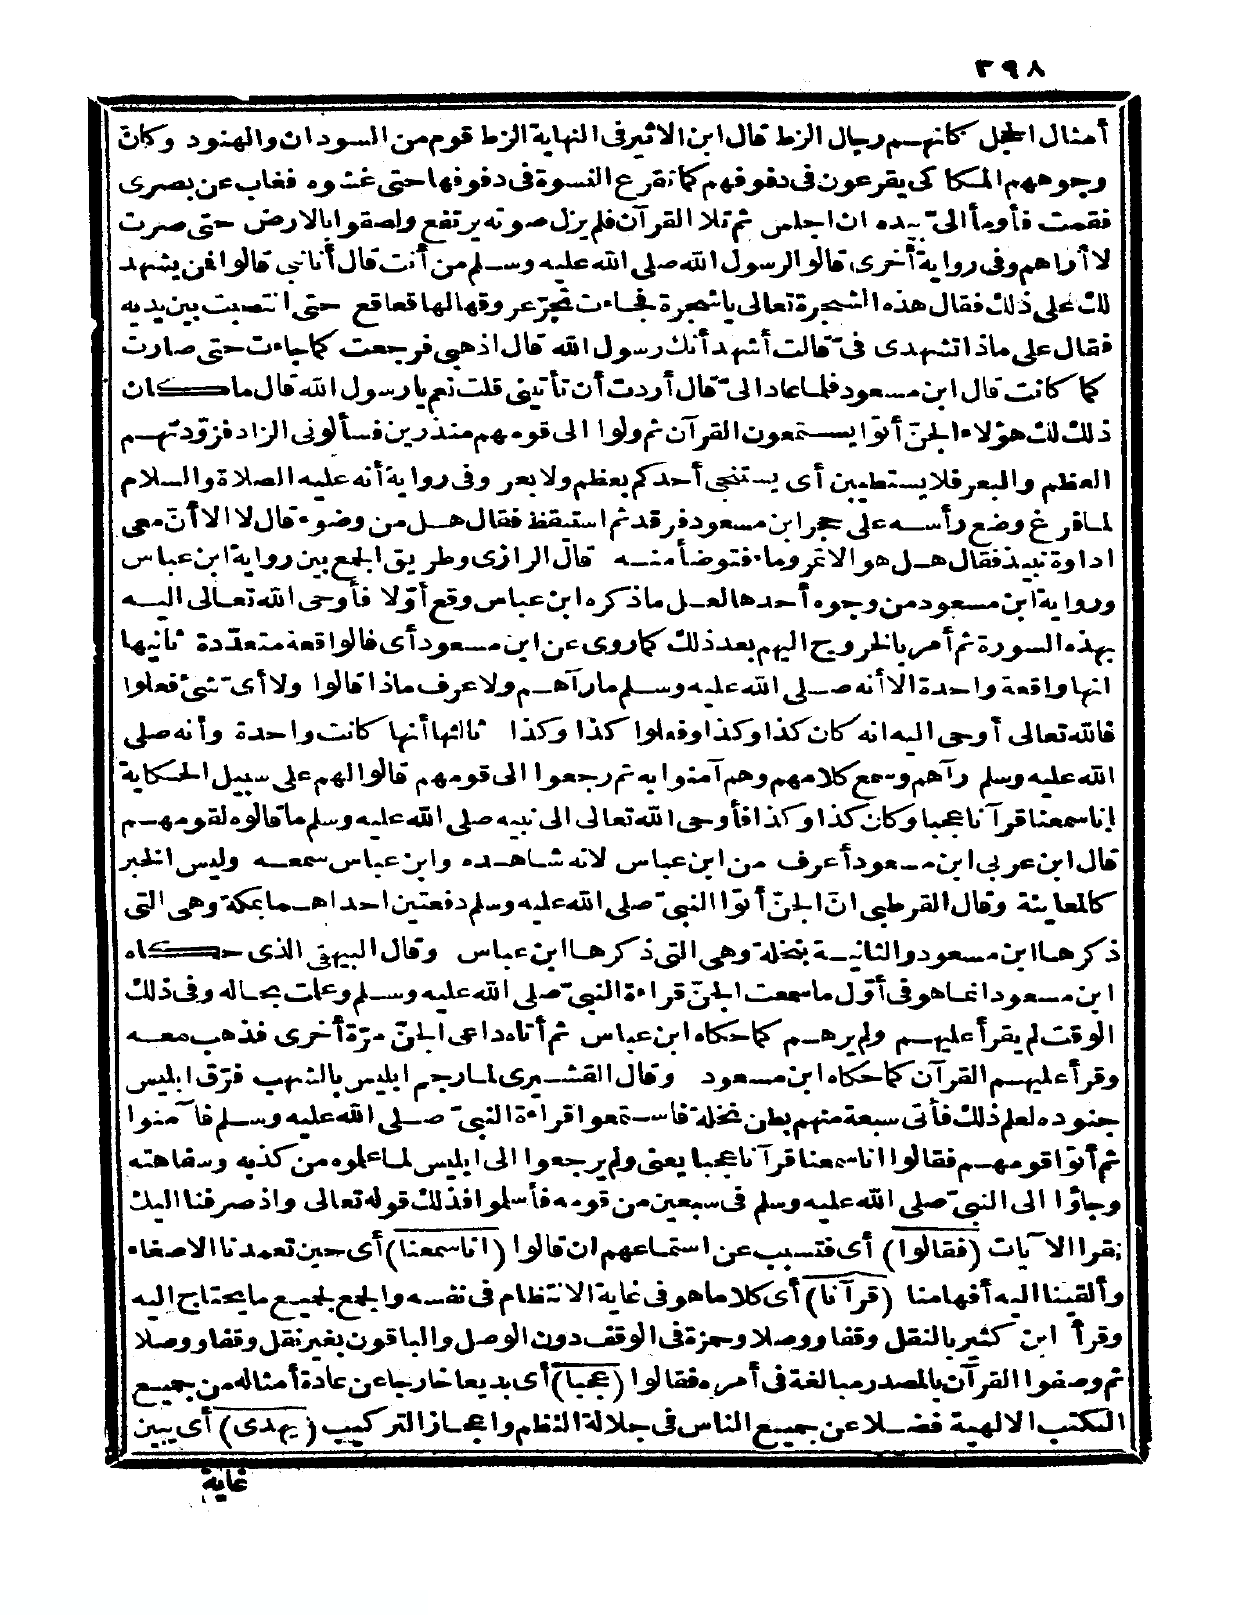 ٣٩٨
أمثال الحجل كانهم رجال الزط قال ابن الاثير فى النهاية الزط قوم من السودان والهنود وكان
وجوههم المكاكى يقرعون فى دفوفهم كما تقرع النسوة فى دفوفها حتى غشوه فغاب عن بصرى
فقمت فأومأ الىّ بيده ان اجلس ثم تلا القرآن فلم يزل صوته يرتفع ولصقوا بالارض حتى صرت
لا أراهم وفى رواية أخرى قالوا لرسول الله صلى الله عليه وسلم من أنت قال أنا نبى قالوا فمن يشهد
لك على ذلك فقال هذه الشجرة تعالى يا شجرة فجاءت تجرّ عروقها لها قعاقع حتى انتصبت بين يديه
فقال على ماذا تشهدى فىّ قالت أشهد أنك رسول الله قال اذهبى فرجعت كما جاءت حتى صارت
كما كانت قال ابن مسعود فلما عاد الىّ قال أردت أن تأتينى قلت نعم يا رسول الله قال ما كان
ذلك لك هؤلاء الجنّ أتوا يستمعون القرآن ثم ولوا الى قومهم منذرين فسألونى الزاد فزوّدتهم
العظم والبعر فلا يستطيبن أى يستنجى أحدكم بعظم ولا بعر وفى رواية أنه عليه الصلاة والسلام
لما فرغ وضع رأسه على حجر ابن مسعود فرقد ثم استيقظ فقال هل من وضوء قال لا الا أنّ معى
اداوة نبيذ فقال هل هو الا تمر وماء فتوضأ منه قال الرازى وطريق الجمع بين رواية ابن عباس
ورواية ابن مسعود من وجوه أحدها لعل ما ذكره ابن عباس وقع أوّلا فأوحى الله تعالى اليه
بهذه السورة ثم أمر بالخروج اليهم بعد ذلك كما روى عن ابن مسعود أى فالواقعة متعدّدة ثانيها
انها واقعة واحدة الا أنه صلى الله عليه وسلم ما رآهم ولا عرف ماذا قالوا ولا أىّ شئ فعلوا
فالله تعالى أوحى اليه انه كان كذا وكذا وفعلوا كذا وكذا ثالثها أنها كانت واحدة وأنه صلى
الله عليه وسلم رآهم وسمع كلامهم وهم آمنوا به ثم رجعوا الى قومهم قالوا لهم على سبيل الحكاية
إنا سمعنا قرآنا عجبا وكان كذا وكذا فأوحى الله تعالى الى نبيه صلى الله عليه وسلم ما قالوه لقومهم
قال ابن عربى ابن مسعود أعرف من ابن عباس لانه شاهده وابن عباس سمعه وليس الخبر
كالمعاينة وقال القرطبى انّ الجنّ أتوا النبىّ صلى الله عليه وسلم دفعتين احداهما بمكة وهى التى
ذكرها ابن مسعود والثانية بنخلة وهى التى ذكرها ابن عباس وقال البيهقى الذى حكاه
ابن مسعود انما هو فى أوّل ما سمعت الجنّ قراءة النبىّ صلى الله عليه وسلم وعلمت بحاله وفى ذلك
الوقت لم يقرأ عليهم ولم يرهم كما حكاه ابن عباس ثم أتاه داعى الجنّ مرّة أخرى فذهب معه
وقرأ عليهم القرآن كما حكاه ابن مسعود وقال القشيرى لما رجم ابليس بالشهب فرّق ابليس
جنوده لعلم ذلك فأتى سبعة منهم بطن نخلة فاستمعوا قراءة النبىّ صلى الله عليه وسلم فآمنوا
ثم أتوا قومهم فقالوا انا سمعنا قرآنا عجبا يعنى ولم يرجعوا الى ابليس لما علموه من كذبه وسفاهته
وجاؤا الى النبىّ صلى الله عليه وسلم فى سبعين من قومه فأسلموا فذلك قوله تعالى واذ صرفنا اليك
نفرا الآيات (فقالوا) أى فتسبب عن استماعهم ان قالوا (انا سمعنا) أى حين تعمدنا الاصغاء
وألقينا اليه أفهامنا (قرآنا) أى كلاما هو فى غاية الانتظام فى نفسه والجمع لجميع ما يحتاج اليه
وقرأ ابن كثير بالنقل وقفا ووصلا وحمزة فى الوقف دون الوصل والباقون بغير نقل وقفا ووصلا
ثم وصفوا القرآن بالمصدر مبالغة فى أمره فقالوا (عجبا) أى بديعا خارجا عن عادة أمثاله من جميع
الكتب الالهية فضلا عن جميع الناس فى جلالة النظم واعجاز التركيب (يهدى) أى يبين
غاية